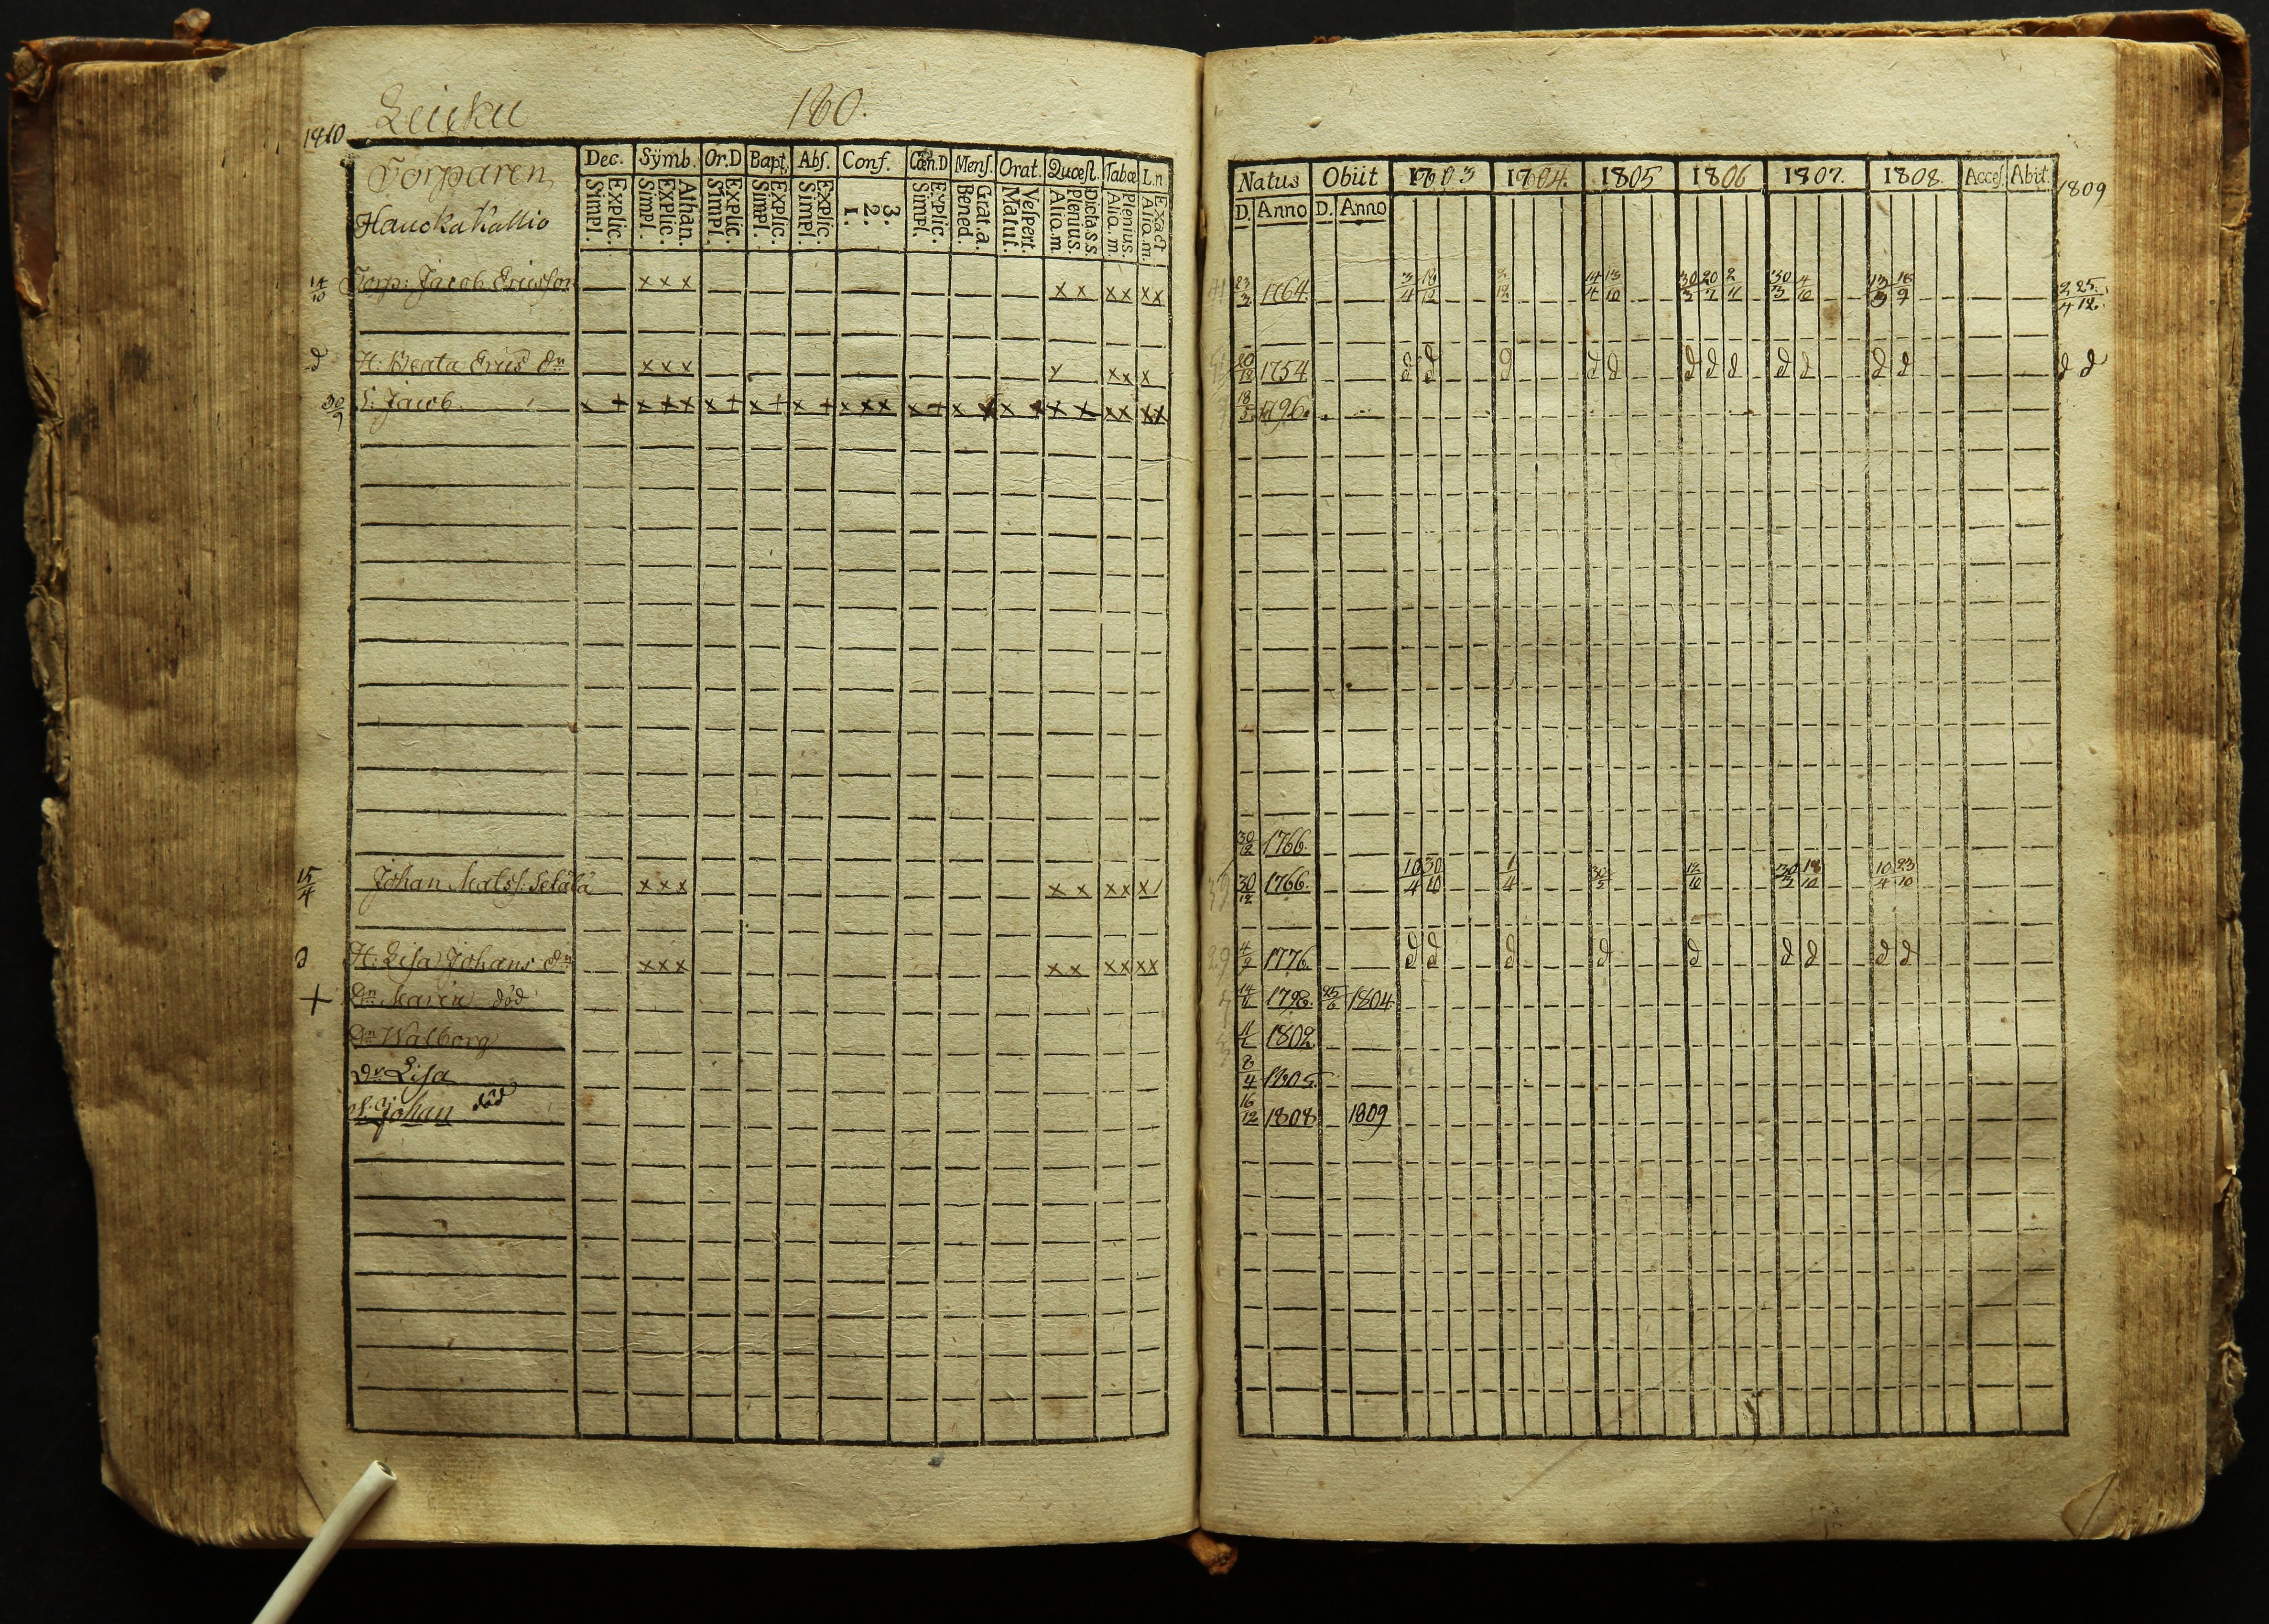 180.
1810
Torparen
Haucka Kallio
Dec. Sÿmb. Or.D Bapt. Abs. Conf. Cœn.D Mens. Orat. Quœst. Tabœ L.n
Explic. Simpl. Athan. Explic. Simpl. Explic. Simpl. Explic. Simpl. Explic. Simpl. 3. 2. 1. Explic. Simpl. Grat.a. Bened. Vespert. Matut. Dicta.s.s. Plenius. Alio.m. Plenius. Alio.m. Exact Alio.m.
14/10 Torp: Jacob Ericsson xxx x x xx xx
d H: Beata Erics dr xxx x xx x
30/9 S: Jacob x + x + x x + x + x + x x x x + x x x x x x x x x x
15/4 Johan Matss: Setälä xxx x x xx x/
d H: Lisa Johans dr xxx x x xx xx
+ Dr Maria död
Dr Walborg
Dr Lisa
S: Johan död
Natus Obiit 1803 1804. 1805 1806 1807. 1808. Acces. Abit. 1809
D. Anno D. Anno
23/3 1764. 3/4 18/12 2/12 14/4 13/10 30/3 20/7 2/11 30/3 4/10 13/3 18/9 2/4 25/12
20/12 1754 d d d d d d d d d d d d d d
18/5 1796.
30/12 1766.
39 30/12 1766. 10/4 30/10 1/4 30/5 12/10 30/3 18/10 10/4 23/10
29 4/9 1776. d d d d d d d d d
14/11 1798. 25/6 1804
11/1 1802
8/4 1805.
16/12 1808 1809